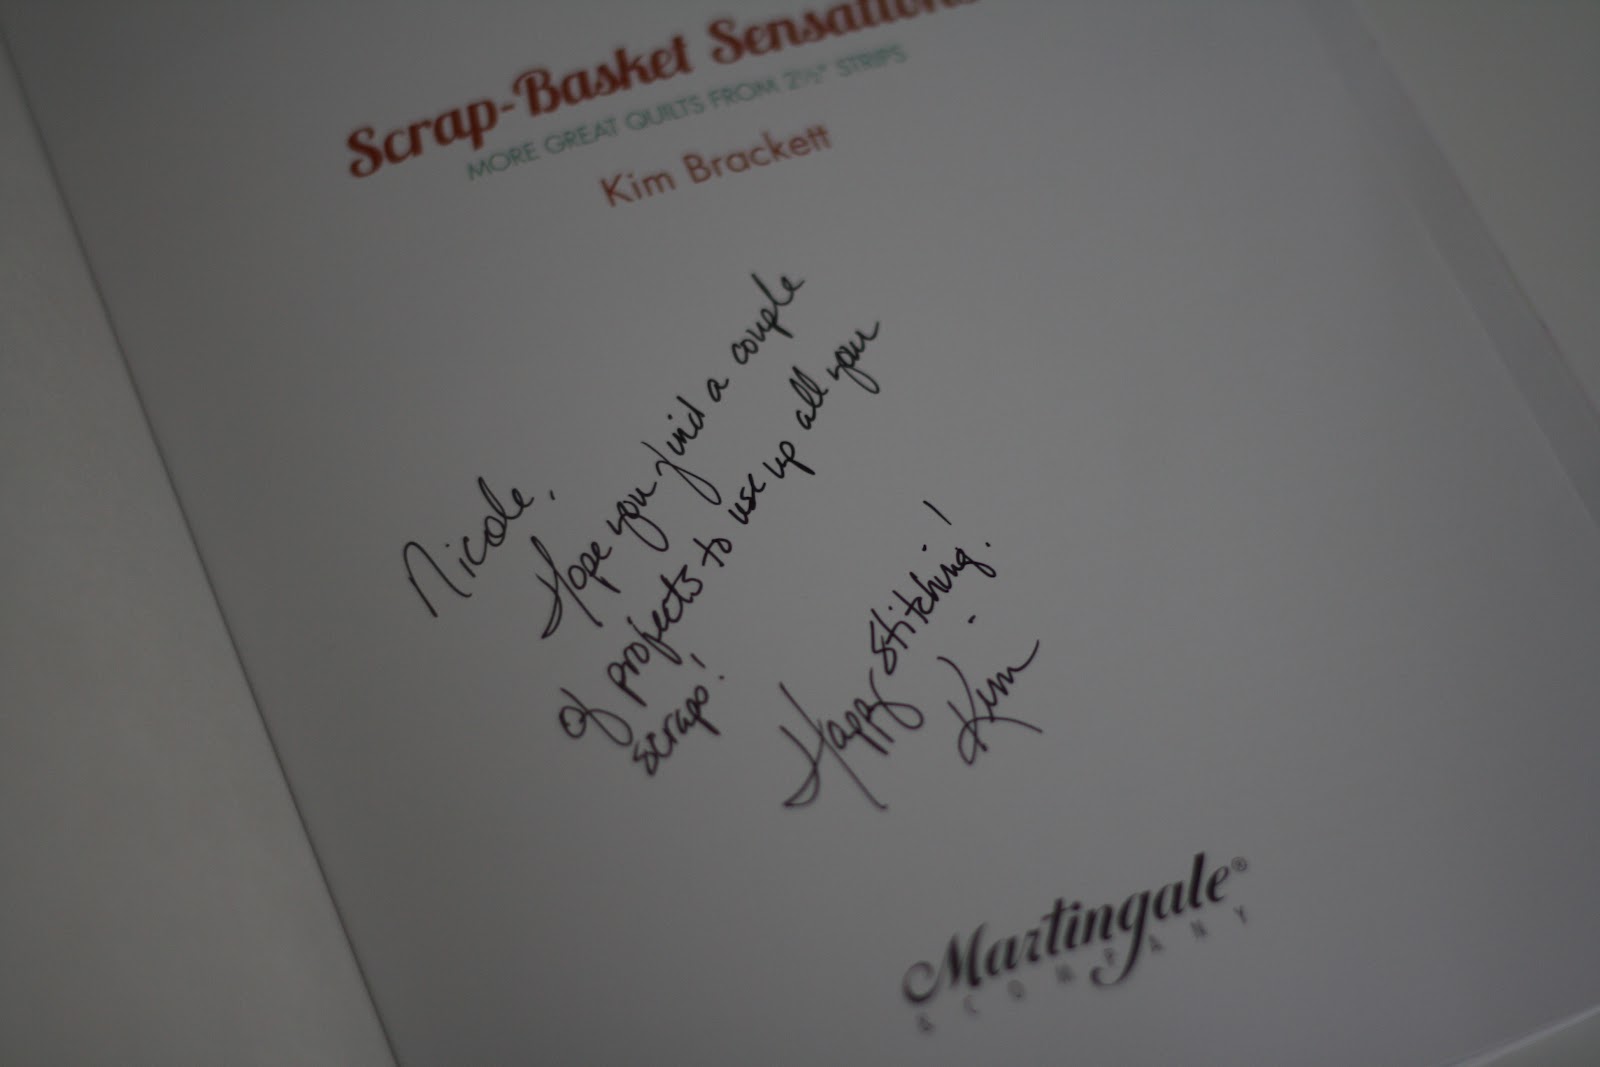 Scrap-Basket Sensations
MORE GREAT QUILTS FROM 2½" STRIPS
Kim Brackett
Nicole,
Hope you find a couple
of projects to use up all your
scraps!
Happy Stitching!
Kim
Martingale®
& COMPANY